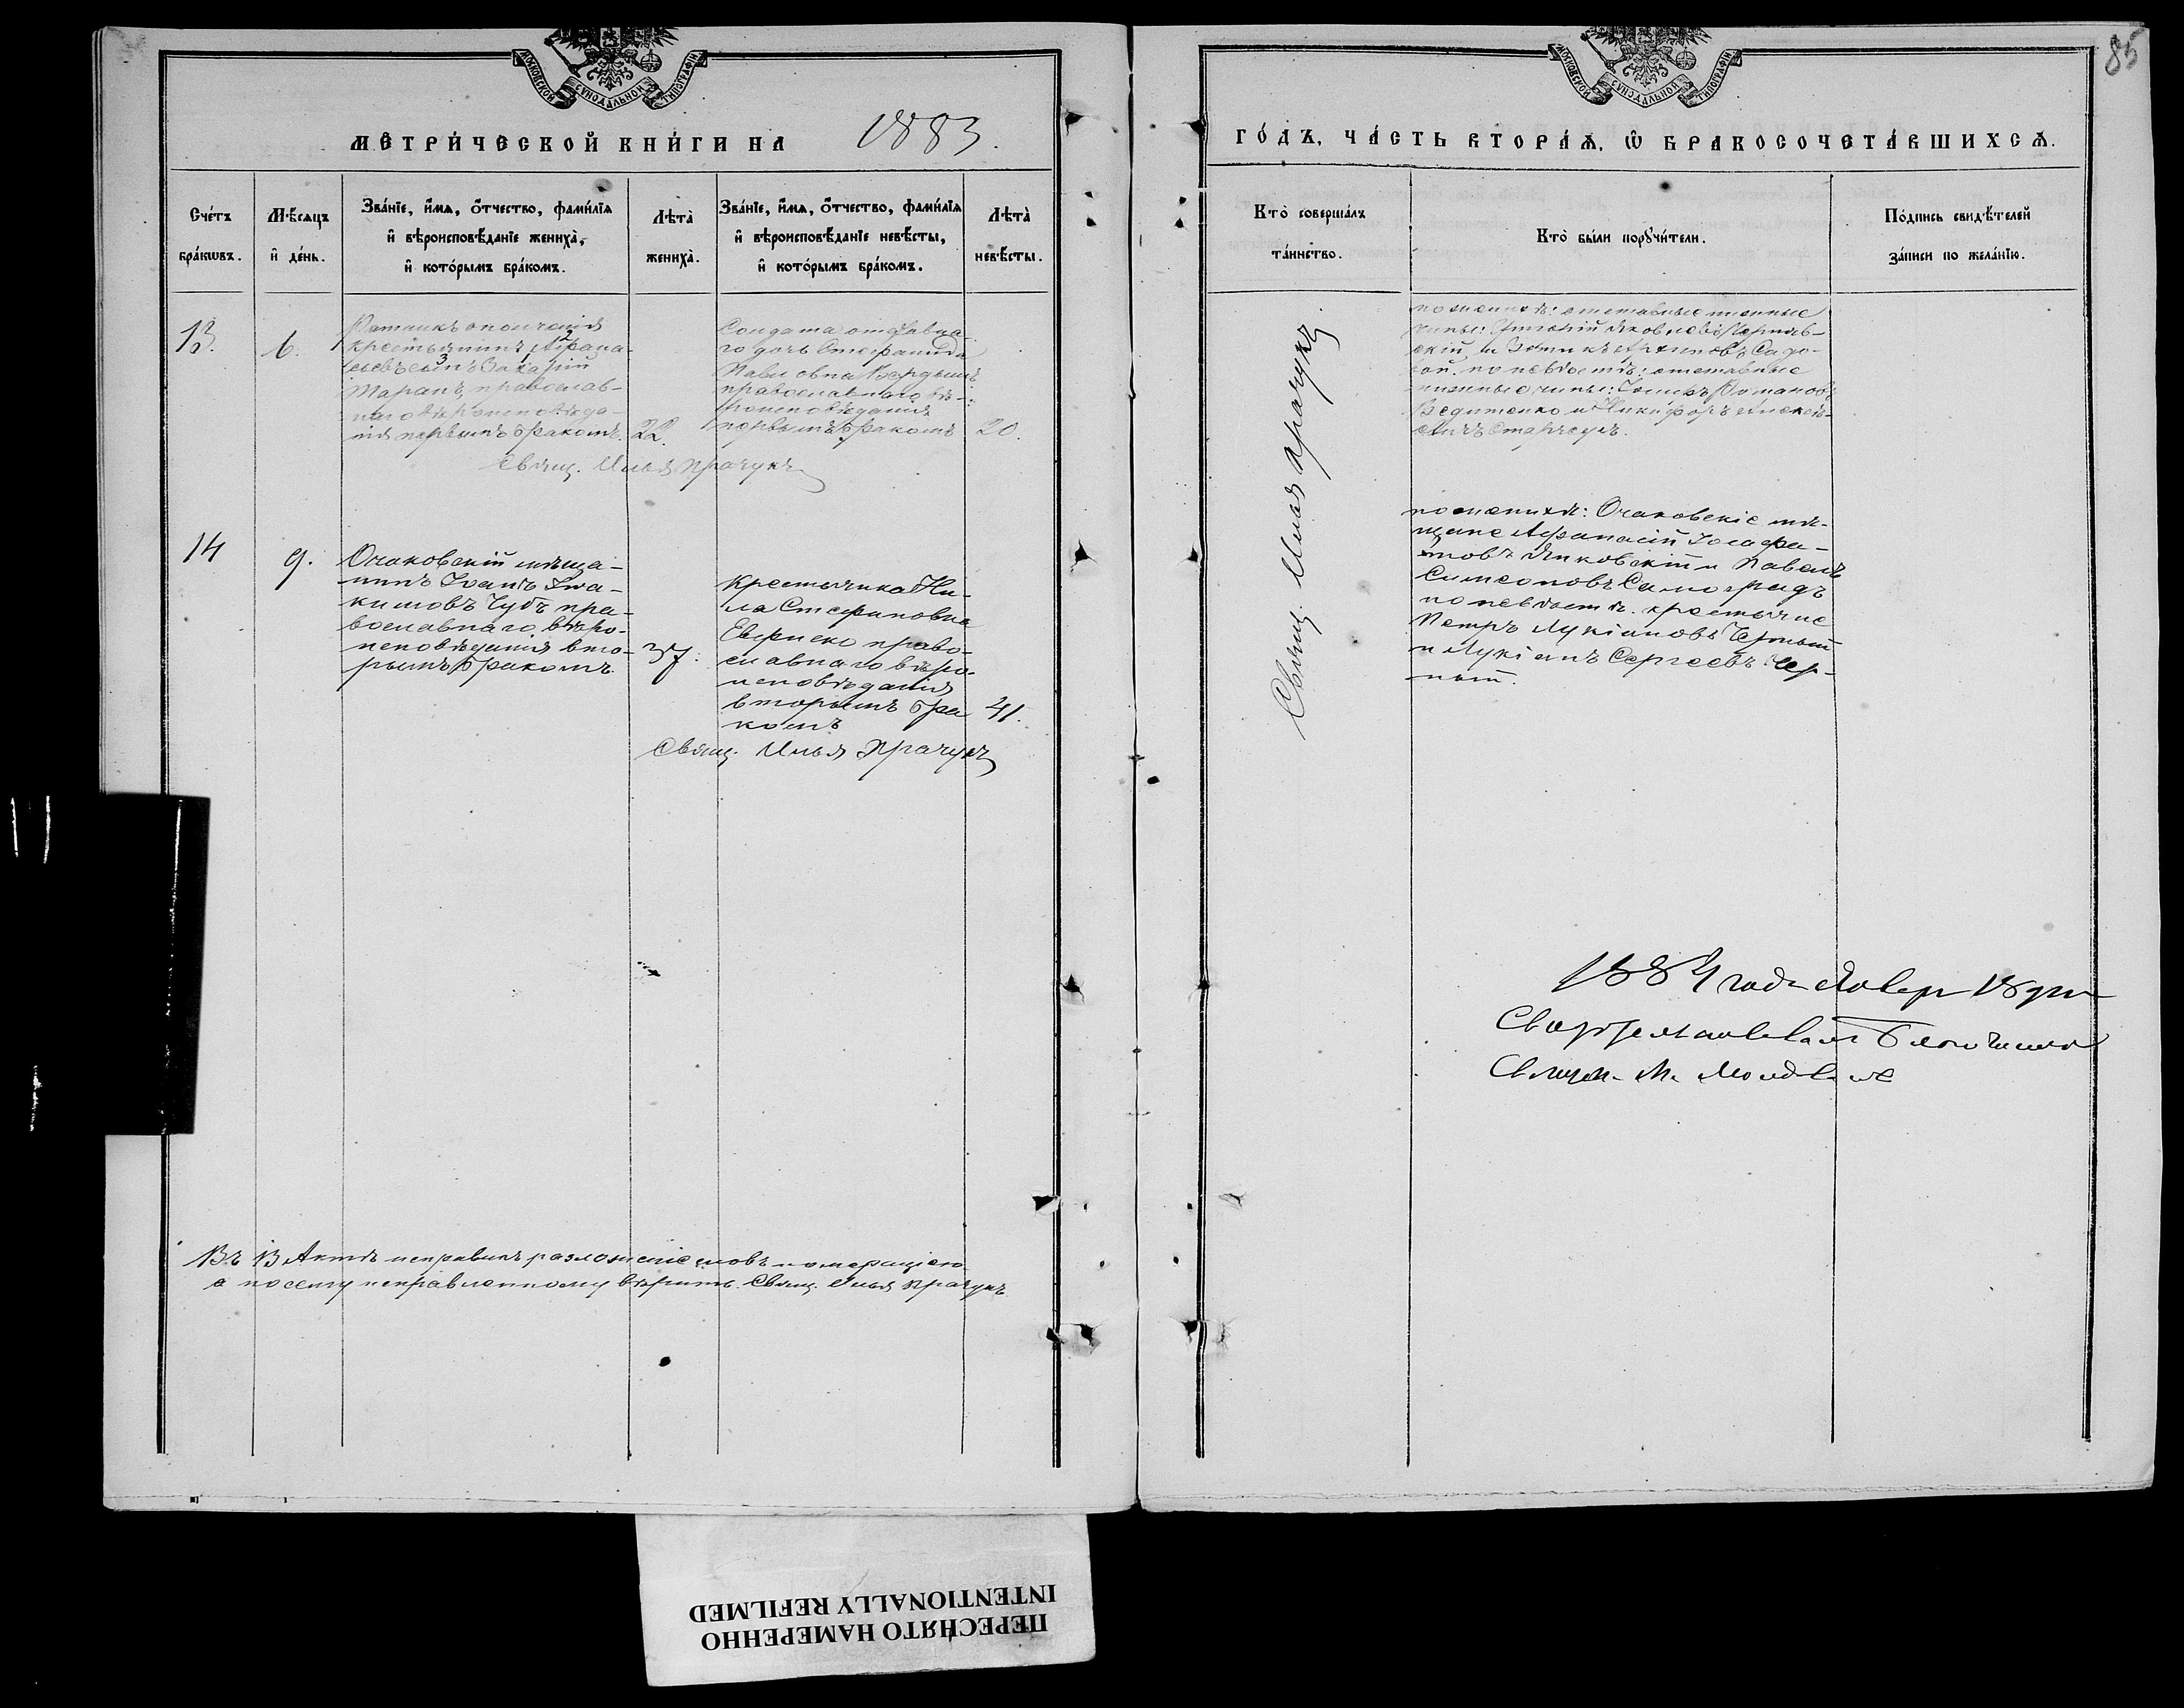 85
МОСКОВСКОЙ СѴНОДАЛЬНОЙ ТИПОГРАФІИ
МЕТРИ́ЧЕСКОЙ КНИ́ГИ НА 1883.
Сче́тъ бра́кωвъ.
Мѣ́сяцъ и҆ де́нь.
Зва́нїе, и҆́мѧ, ѻ҆́тчество, фами́лїѧ
и҆ вѣроисповѣ́данїе жениха̀,
и҆ кото́рымъ бра́комъ.
Лѣта̀ жениха̀.
Зва́нїе, и҆́мѧ, ѻ҆́тчество, фами́лїѧ
и҆ вѣроисповѣ́данїе невѣ́сты,
и҆ кото́рымъ бра́комъ.
Лѣта̀ невѣ́сты.
13.
6.
Ратникъ ополченія
крестьянинъ Афана-
сьевъ сынъ Захарій
Таранъ, православ-
наго вѣроисповѣда-
нія первымъ бракомъ.
22.
Солдата отставна-
го дочь Стефанида
Павловна
православнаго вѣ-
роисповѣданія
первымъ бракомъ
20.
Свящ. Илья Прачукъ
14
9.
Очаковскій мѣща-
нинъ Іванъ Іоа-
кимовъ Чубъ пра-
вославнаго вѣро-
исповѣданія вто-
рымъ бракомъ.
37.
Крестьянка
Стефановна
право-
славнаго вѣро-
исповѣданія
вторымъ бра
комъ
41.
Свящ. Илья Прачукъ
Въ 13 Актѣ исправилъ разложеніе словъ нумераціею
а посему исправленному вѣрить. Свящ. Илья Прачукъ
МОСКОВСКОЙ СѴНОДАЛЬНОЙ ТИПОГРАФІИ
ГО́ДЪ, ЧА́СТЬ ВТОРА́Ѧ, Ѡ҆ БРАКОСОЧЕТА́ВШИХСѦ.
Кто̀ соверша́лъ
та́инство.
Кто̀ бы́ли порꙋчи́тели.
По́дпись свидѣ́телей
за́писи по жела́нїю.
Свящ. Илья Прачукъ.
по женихѣ: отставные нижные
чины: Григорій Яковлевъ Черняв-
скій и Архиповъ Садо-
вой. по невѣстѣ: отставные
нижные чины: Іосифъ Романовъ
и Никифоръ Алексѣ-
евичъ
по женихѣ: Очаковскіе мѣ-
щане Афанасій Іосафа-
товъ Янковскій и Павелъ
Симеоновъ
по невѣстѣ. крестьяне
Петръ Лукіановъ Черный
и Лукіанъ Сергеевъ Чер-
ный.
1884 года Январ 18 дня
Свидѣтельствовалъ Благочинный
Священ. М.
ПЕРЕСНЯТО НАМЕРЕННО
INTENTIONALLY REFILMED